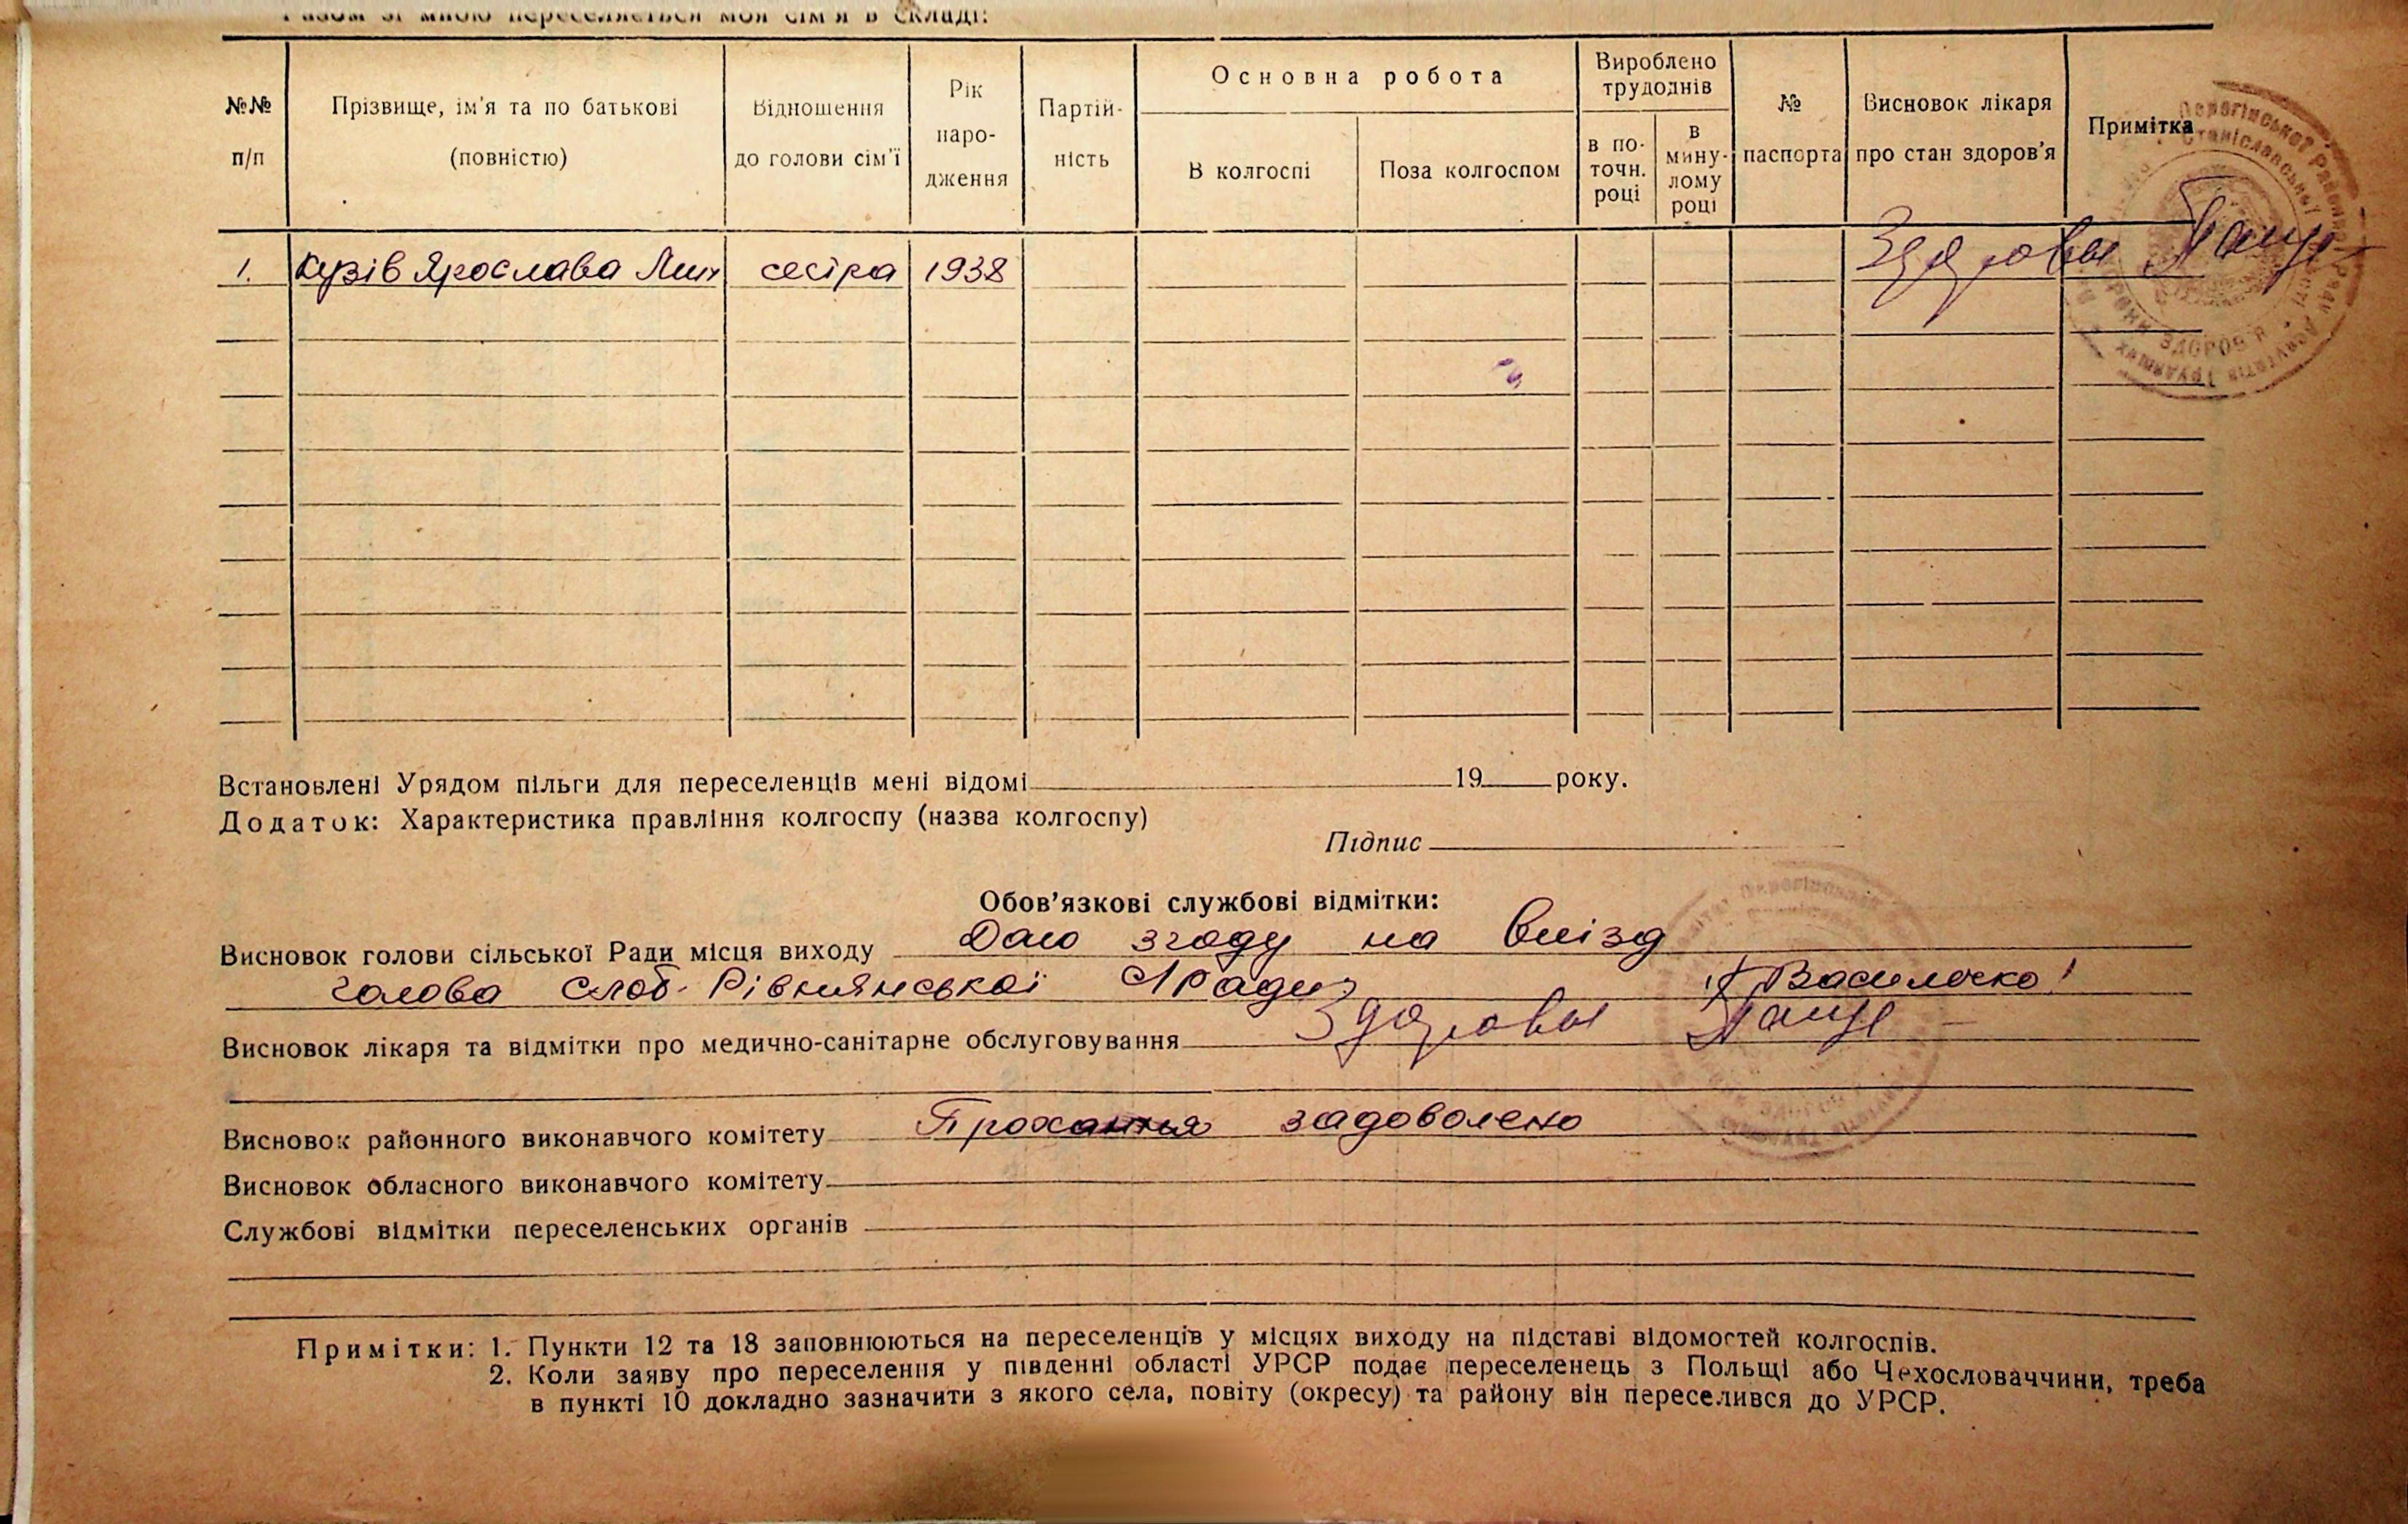 Разом зі мною переселяється моя сім'я в складі:
№№ п/п
Прізвище, ім'я та по батькові (повністю)
Відношення до голови сім'ї
Рік наро-дження
Партій-ність
Основна робота
В колгоспі
Поза колгоспом
Вироблено трудоднів
в по-точн. році
в мину-лому році
№ паспорта
Висновок лікаря про стан здоров'я
Примітка
1. Кузів Ярослава сестра 1938 Здоровы
Встановлені Урядом пільги для переселенців мені відомі 19 року.
Додаток: Характеристика правління колгоспу (назва колгоспу)
Підпис
Обов'язкові службові відмітки:
Висновок голови сільської Ради місця виходу Даю згоду на виїзд
Голова Слоб. Рівнянської с/Ради /Василечко/
Висновок лікаря та відмітки про медично-санітарне обслуговування Здоровы
Висновок районного виконавчого комітету Прохання задоволено
Висновок обласного виконавчого комітету
Службові відмітки переселенських органів
Примітки: 1. Пункти 12 та 13 заповнюються на переселенців у місцях виходу на підставі відомостей колгоспів.
2. Коли заяву про переселення у південні області УРСР подає переселенець з Польщі або Чехословаччини, треба
в пункті 10 докладно зазначити з якого села, повіту (окресу) та району він переселився до УРСР.